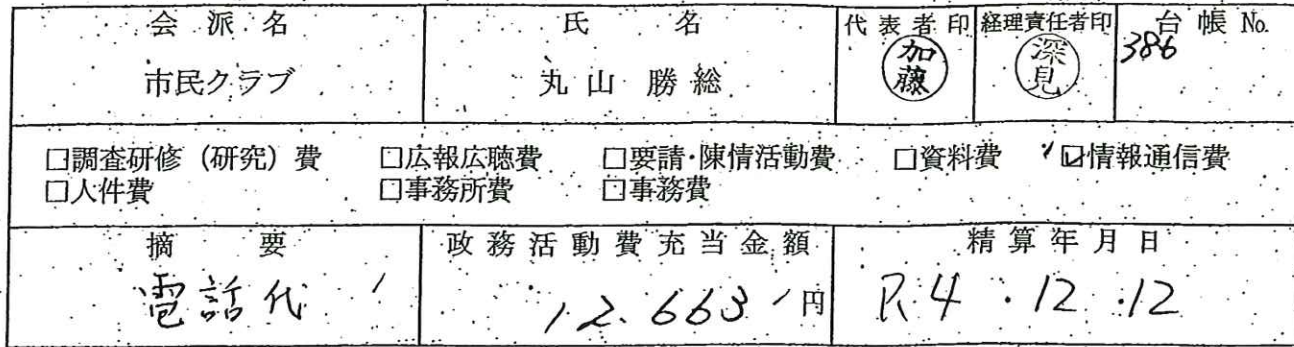 会派名 氏名 代表者印 経理責任者印 台帳No.
市民クラブ 丸山勝総 加藤 深見 386
□調査研修(研究)費 □広報広聴費 □要請・陳情活動費 □資料費 ☑情報通信費
□人件費 □事務所費 □事務費
摘要 政務活動費充当金額 精算年月日
電話代 12.663円 R4.12.12